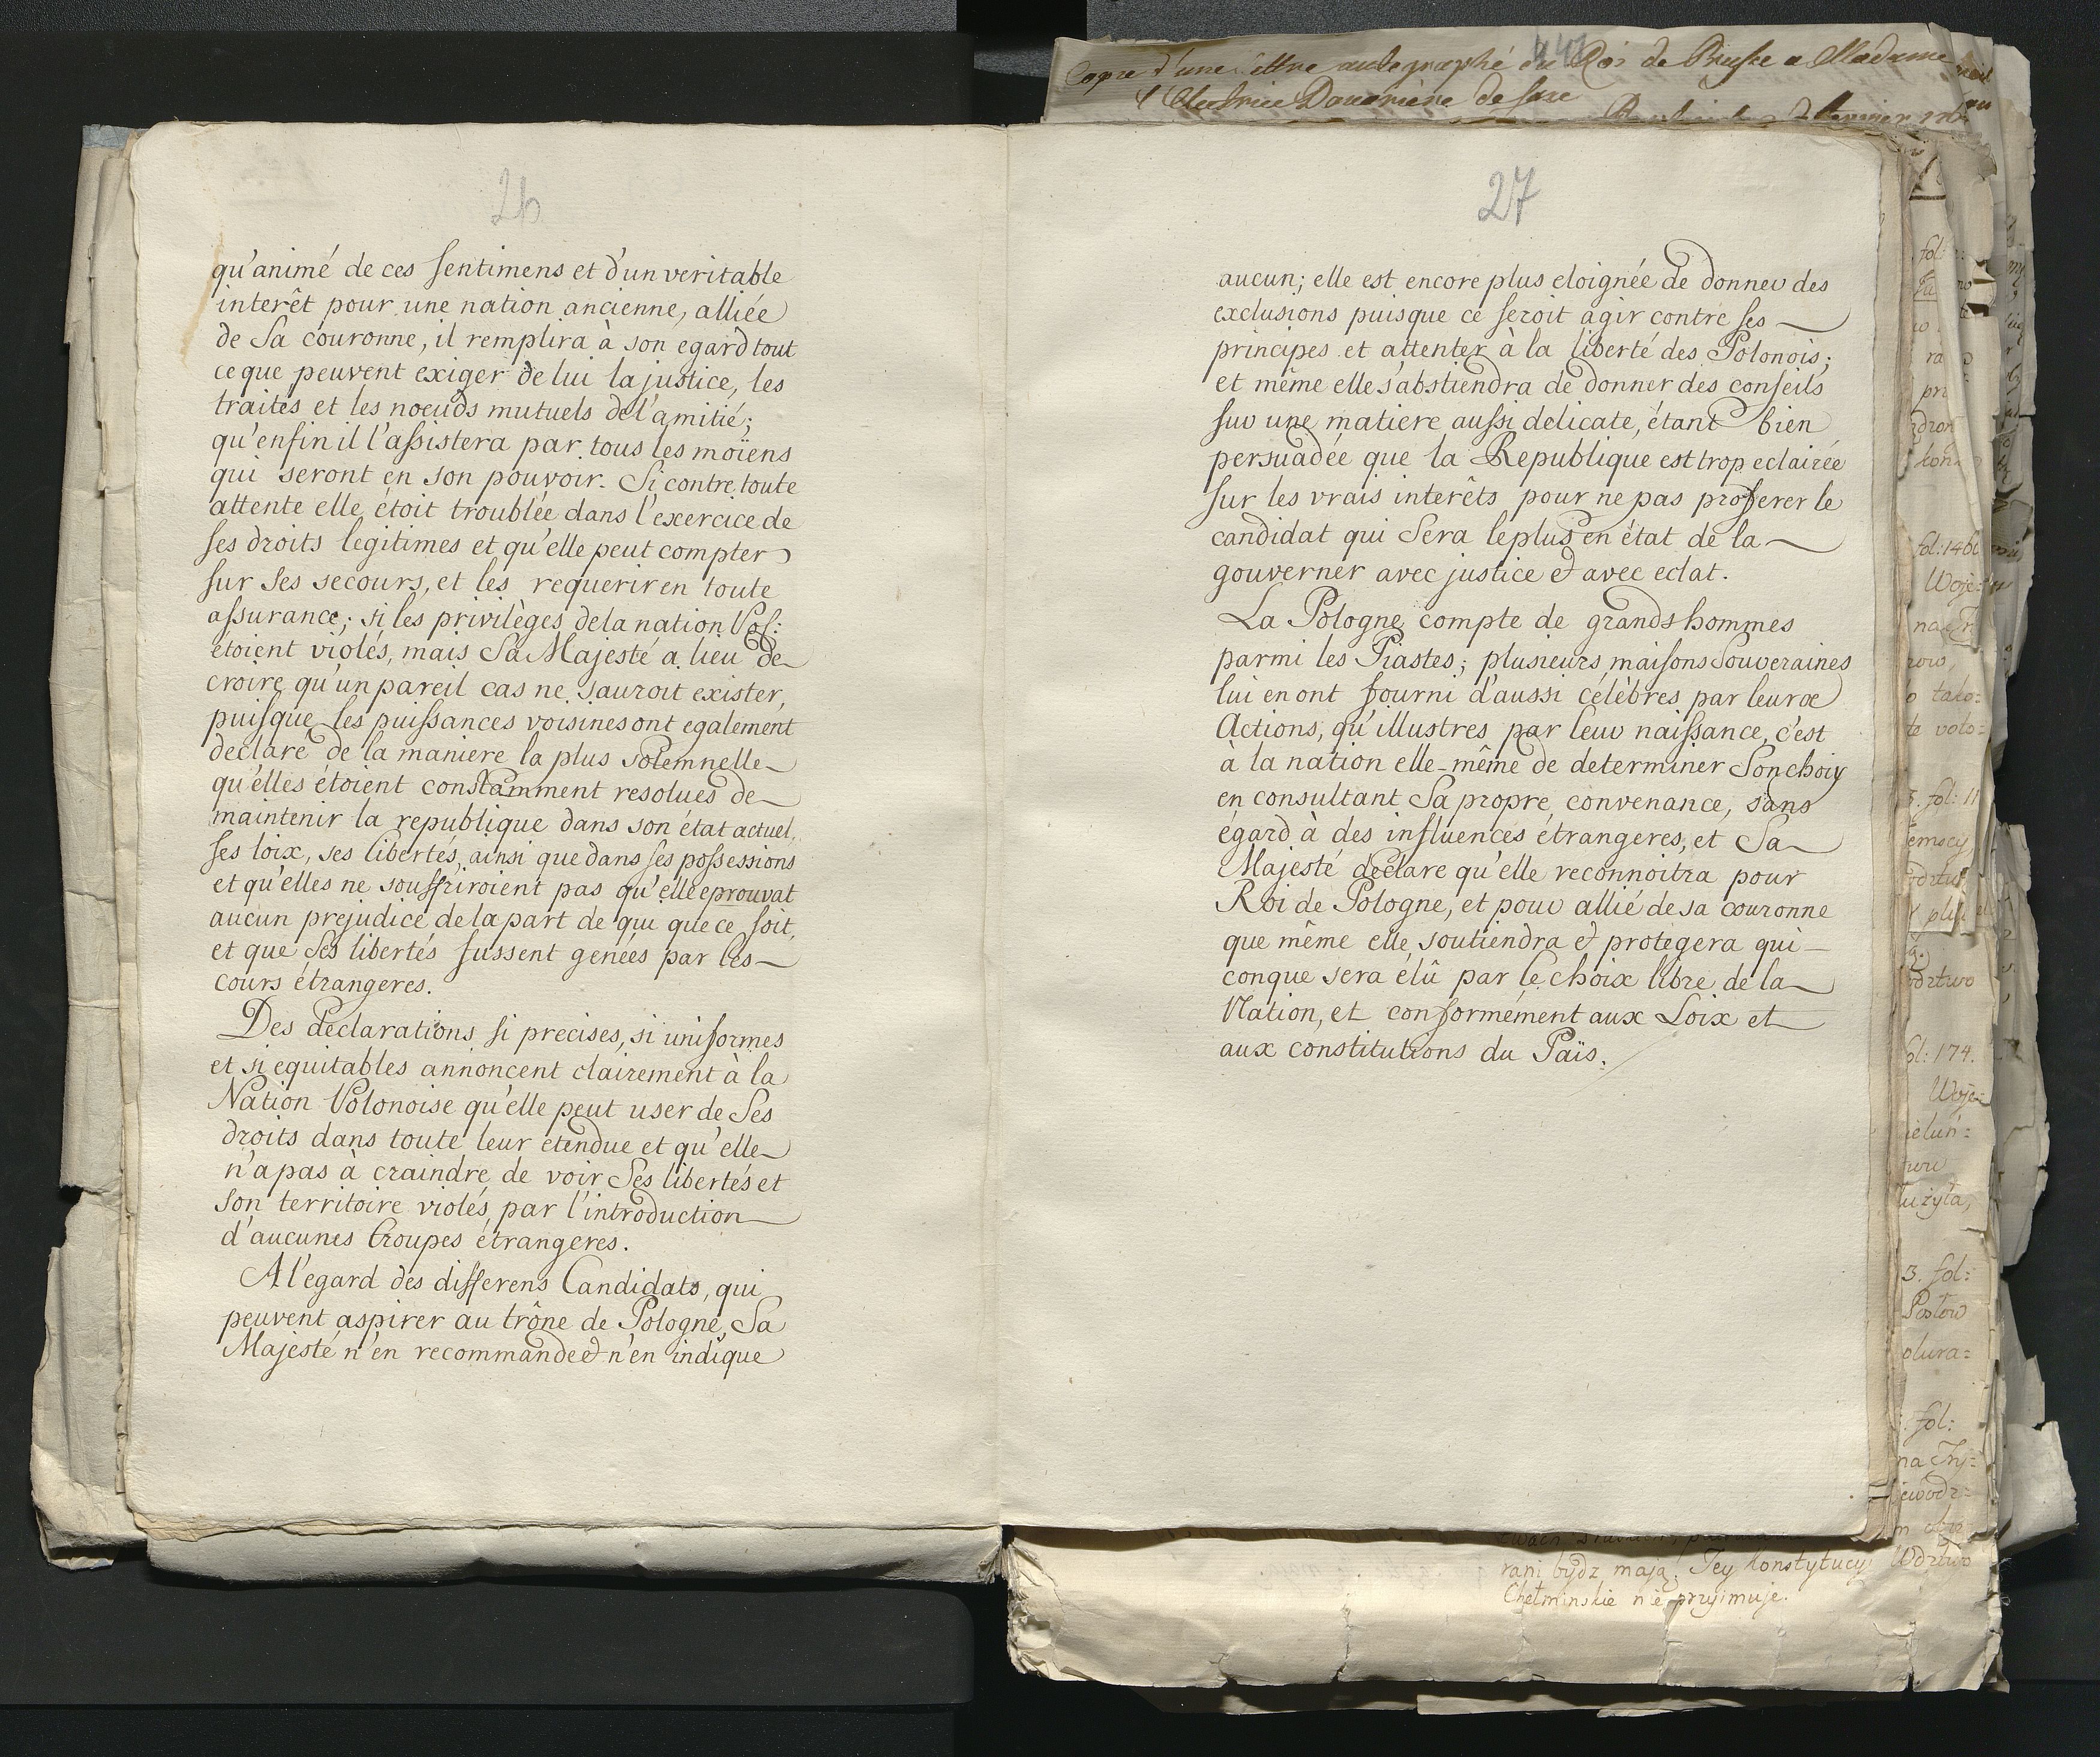 26
qu'animé de ces sentimens et d'un veritable
interêt pour une nation ancienne, alliée
de Sa couronne, il remplira à son egard tout
ce que peuvent exiger de lui la justice, les
traités et les noeuds mutuels de l'amitié;
qu'enfin il l'assistera par tous les moïens
qui seront en son pouvoir. Si contre toute
attente elle étoit troublée dans l'exercice de
ses droits legitimes et qu'elle peut compter
sur ses secours, et les requerir en toute
assurance; si les privilèges de la nation Pol:
étoient violés, mais Sa Majesté a lieu de
croire qu'un pareil cas ne sauroit exister,
puisque les puissances voisines ont egalement
declaré de la maniere la plus solemnelle
qu'elles étoient constamment resolues de
maintenir la republique dans son état actuel,
ses loix, ses libertés, ainsi que dans ses possessions
et qu'elles ne souffriroient pas qu'elle eprouvat
aucun prejudice de la part de qui que ce soit,
et que ses libertés fussent genées par les
cours étrangeres.
Des declarations si precises, si uniformes
et si equitables annoncent clairement à la
Nation Polonoise qu'elle peut user de Ses
droits dans toute leur etendue et qu'elle
n'a pas à craindre de voir Ses libertés et
son territoire violés par l'introduction
d'aucunes troupes étrangeres.
A l'egard des differens Candidats, qui
peuvent aspirer au trône de Pologne, Sa
Majesté n'en recommande et n'en indique
27
aucun; elle est encore plus eloignée de donner des
exclusions puisque ce seroit agir contre ses
principes et attenter à la liberté des Polonois;
et même elle s'abstiendra de donner des conseils
sur une matiere aussi delicate, étant bien
persuadée que la Republique est trop eclairée
sur les vrais interêts pour ne pas proferer le
candidat qui Sera le plus en état de la
gouverner avec justice et avec eclat.
La Pologne compte de grands hommes
parmi les Piastes; plusieurs maisons Souveraines
lui en ont fourni d'aussi célèbres par leurs
Actions, qu'illustres par leur naissance, c'est
à la nation elle-même de determiner Son choix
en consultant Sa propre convenance, sans
égard à des influences étrangeres, et Sa
Majesté declare qu'elle reconnoitra pour
Roi de Pologne, et pour allié de sa couronne
que même elle soutiendra et protegera qui-
conque sera élû par le choix libre de la
Nation, et conformément aux Loix et
aux constitutions du Païs.
Copie d'une lettre autographe du Roi de Prusse a Madame
l'Electrice Douariere de Saxe
fol: 146
Woje-
fol: 174.
Woje-
lużyła,
3. fol:
Posłow
fol:
rani bydz maią. Tey konstytucyi Wdztwo
Chełminskie nie przyimuje.